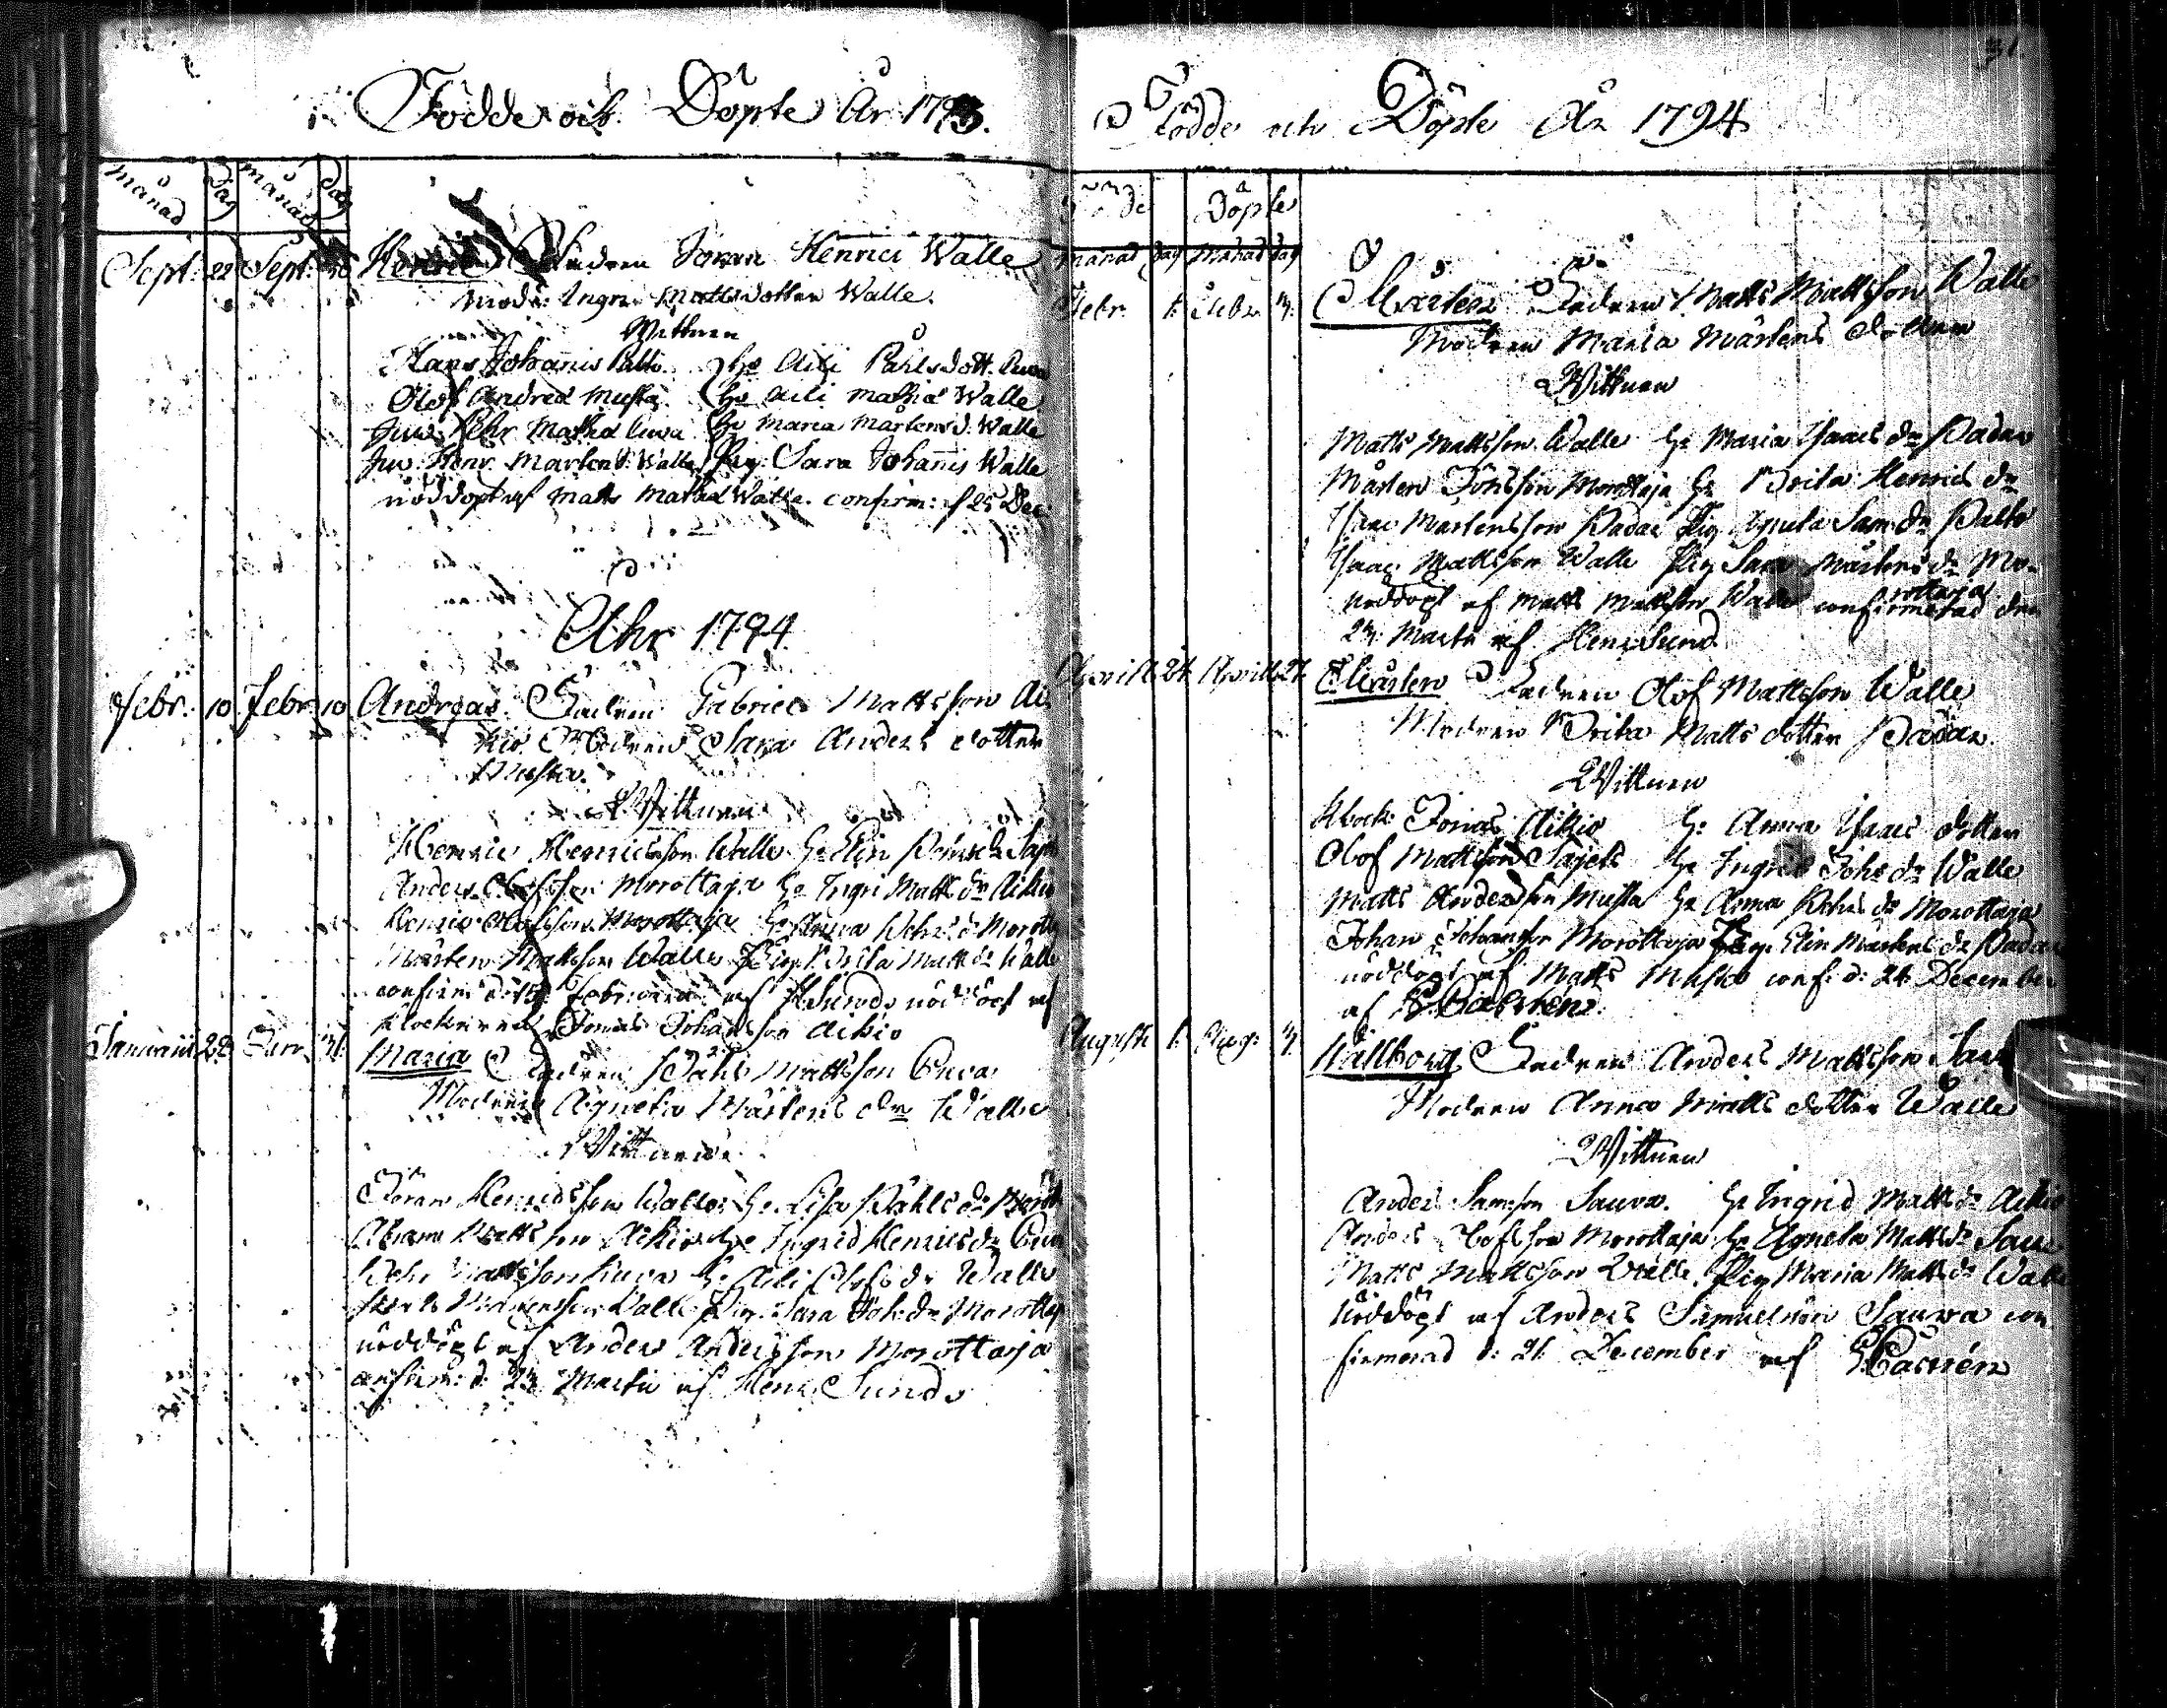 Födde och Döpte År 1793.
Månad Dag Månad Dag
Sept: 22 Sept: Henric Fadren Jöran Henrici Walle
Modr: Ingri Mattsdotter Walle.
Wittnen
Hans Johannis Palto. Hu Aili Påhlsdott. Cuwa
Olof Andreæ Musta. Hu Aili Mathiæ Walle
Juv. Pehr Mathiæ Cuwa Hu Maria Mårtensd. Walle
Juv. Henr. Martens. Walle, Pig. Sara Johannis Walle
nöddöpt af Matts Mathiæ Walle. confirm: f 25 Dec:
Ahr 1794.
Febr. 10 Febr. 10 Andreas. Fadren Gabriel Mattsson Ai-
kio Modren Sara Anders dotter
Musta.
Wittnen
Henric Henricsson Walle Hu Elin
Anders Olofsson Morottaja Hu Ingri Matts dr Aikio
Henric Olofsson Morottaja Hu Anna Pehrs dr Morotta
Mårten Mattsson Walle Pig. Brita Matts dr Walle
confirm d: 15 Februarii af HSund, nöddöpt af
klockaren Jonas Johansson Aikio
Januarii 28 Jan. 31. Maria Fadren Påhl Mattsson Cuva
Modren Agneta Mårtens dr Walle
Wittnen
Jöran Henricsson Walle, Hu Lisa Påhls dr Morott
Abram Mattsson Aikio Hu Ingrid Henrics dr Cuv
Pehr Mattsson Kuva Hu Aili Olofs dr Walle
Mårtensson Walle Pig. Sara Joh: dr Morottaj
nöddöpt af Anders Andersson Morottaja
confirm: d: 23 Martii af Henr. Sund.
31.
Födde och Döpte År 1794
Födde Döpte
Månad Dag Månad Dag
Febr. 1. Febr. 3. Mårten Fadren Matts Mattsson Walle
Modren Maria Mårtens dotter
Wittnen
Matts Mattsson Walle Hu Maria Isaacs dr Padar
Mårten Jönsson Morottaja Hu Brita Henrics dr
Isaac Mårtensson Padar Pig Agneta Sam: dr Palto
Isaac Mattsson Walle Pig Sara Mårtens dr Mo-
rottaja
nöddöpt af Matts Mattsson Walle confirmerad den
23. Martii af Henr. Sund.
Aprill 24. Aprill 27. Mårten Fadren Olof Mattsson Walle
Modren Brita Matts dotter Padar.
Wittnen
Klock: Jonas Aikio Hu Anna Isaacs dotter
Olof Mattsson Sajets Hu Ingrid Johs dr Walle
Matts Andersson Musta Hu Anna Pehrs dr Morottaja
Johan Johansson Morottaja Pig. Elin Mårtens dr Padar
nöddöpt af Matts Musta conf: d: 24 December
af
Augusti 1. Aug: 3. Wallborg Fadren Anders Mattsson Sau
Modren Anna Matts dotter Walle
Wittnen
Anders Samsson Sauva. Hu Ingrid Matts dr Aikio
Anders Olofsson Morottaja Hu Agneta Matts dr Sauv
Matts Mattsson Walle. Pig Maria Matts dr Walle
Nöddöpt af Anders Samuelsson Sauva con
firmerad d: 21. December af